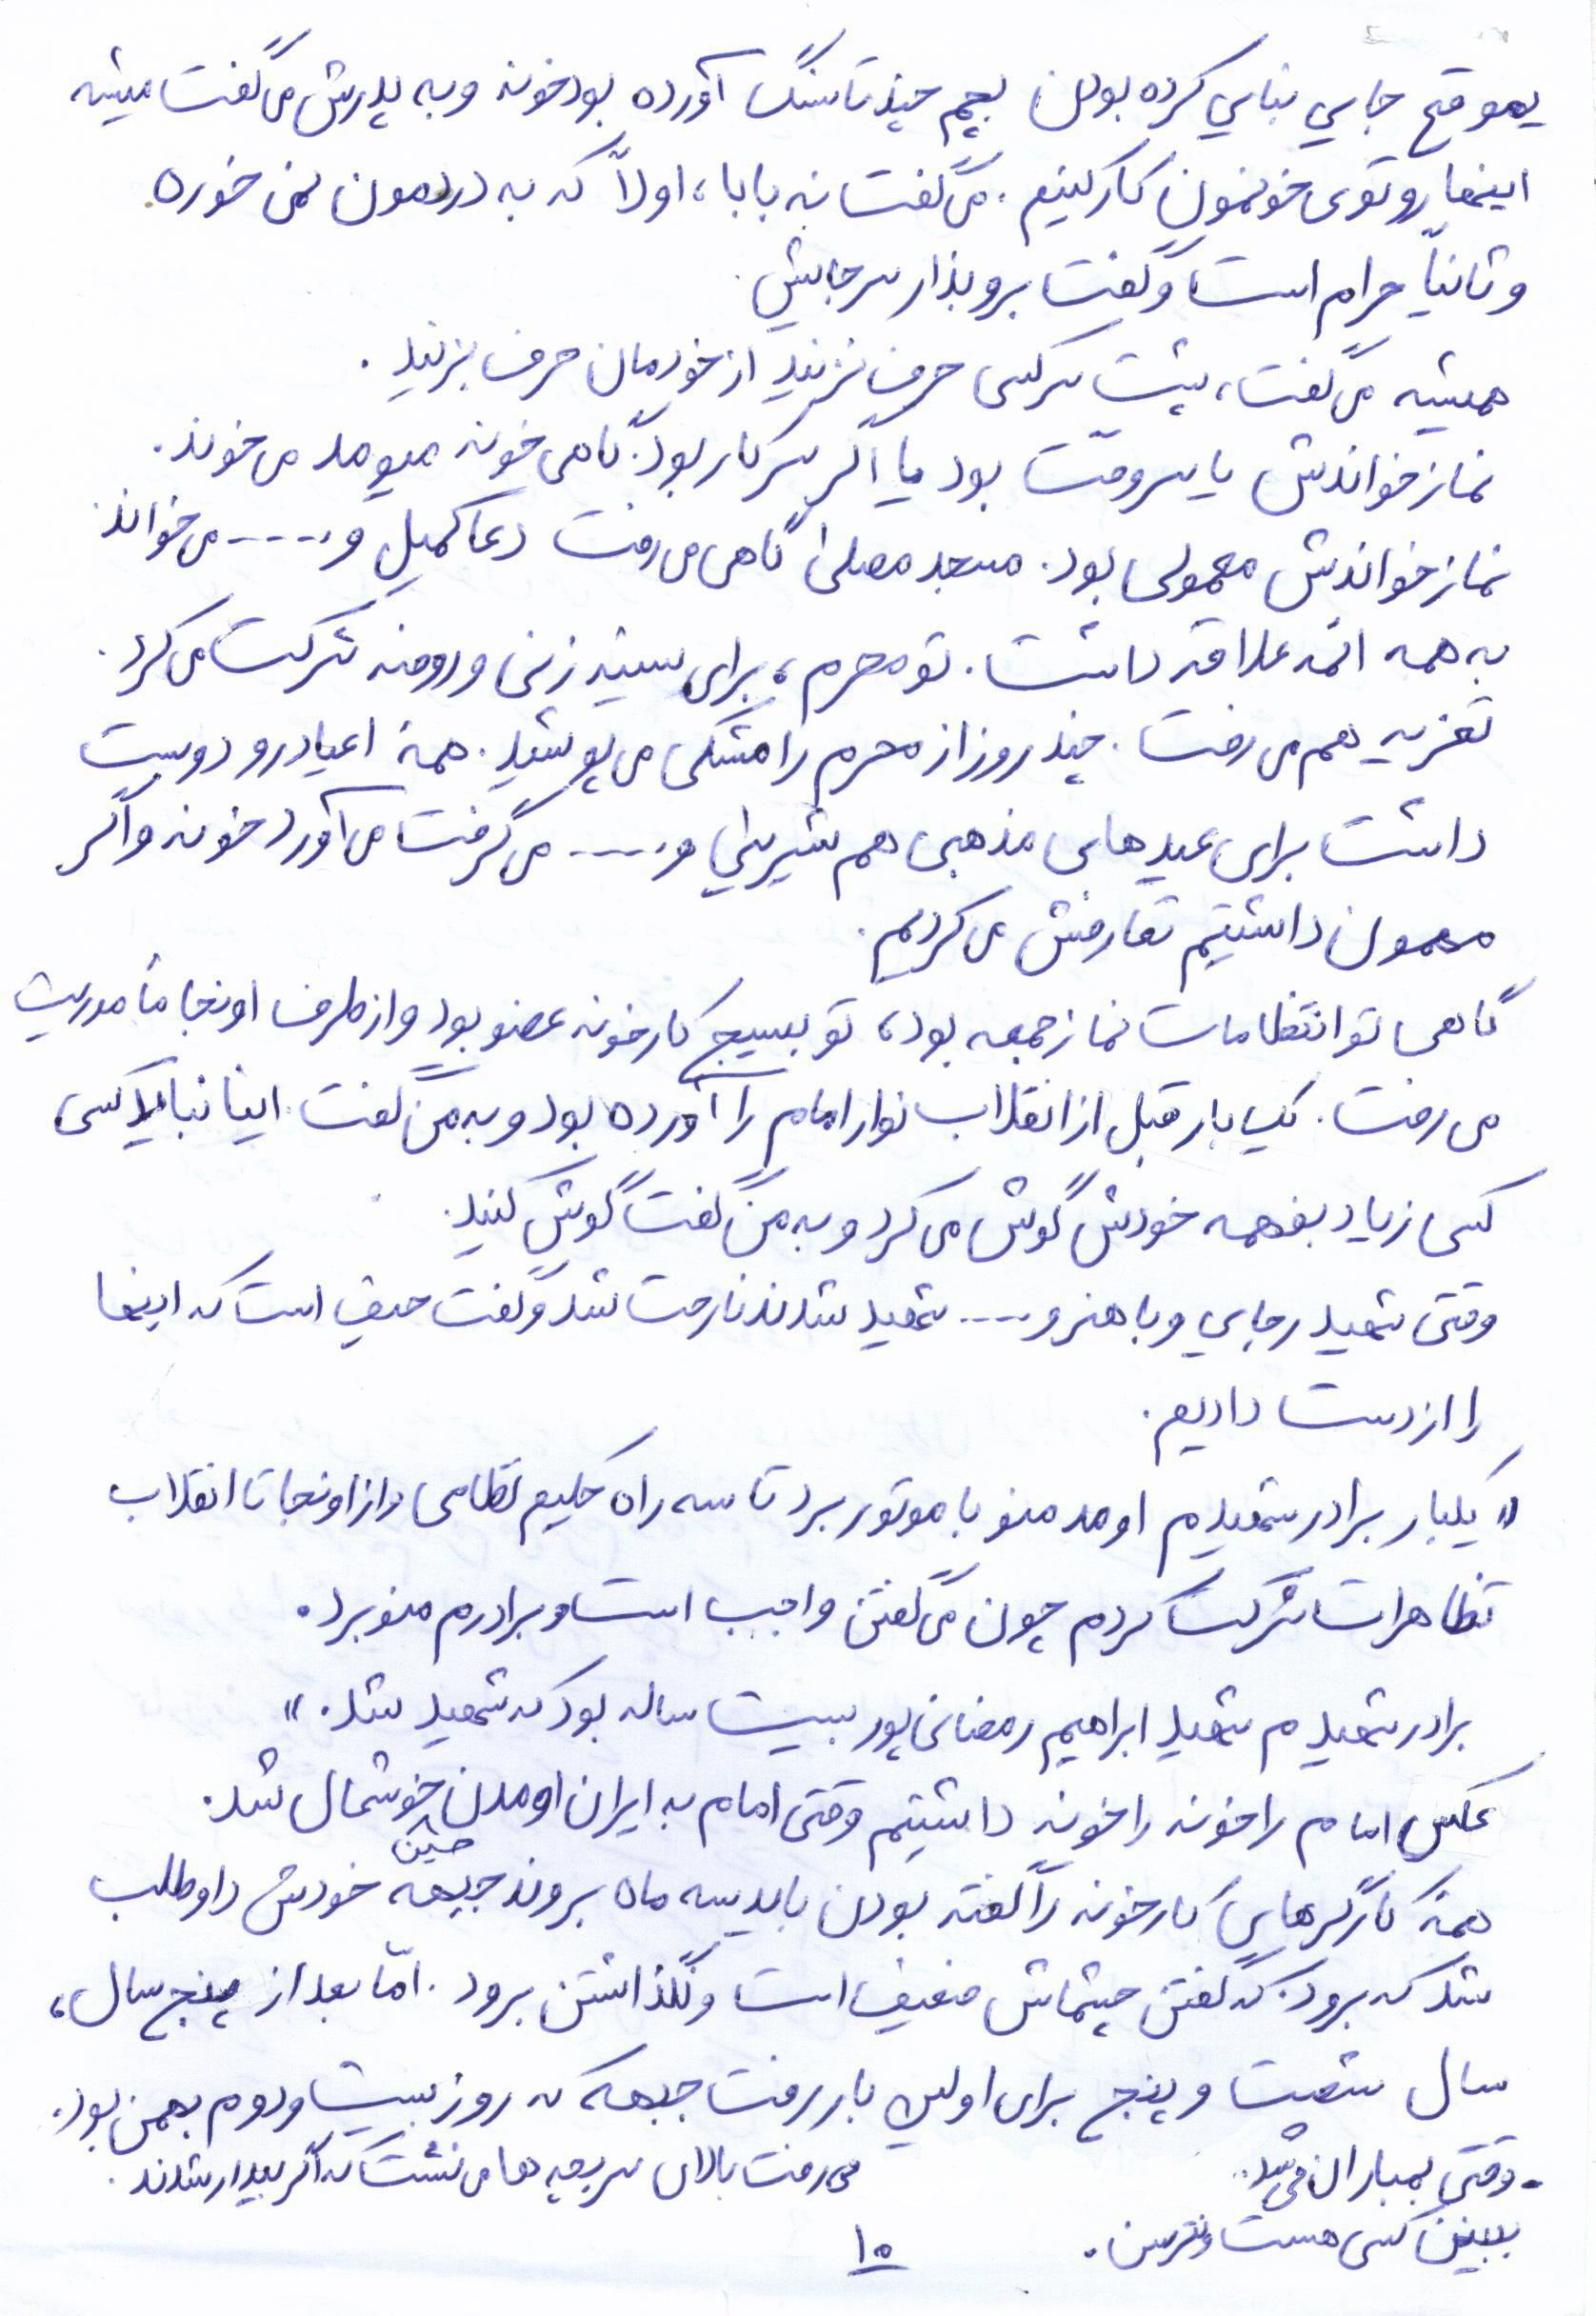 یموقع جایی بنایی کرده بودن بچم چند تا سنگ آورده بود خونه و به پدرش می گفت میشه
اینها رو توی خونمون کار کنیم. می گفت نه بابا، اولاً که به دردمون نمی خوره
و ثانیاً حرام است و گفت برو بذار سر جایش.
همیشه می گفت، پشت سر کسی حرف نزنید از خودمان حرف بزنید.
نماز خواندنش یا سروقت بود یا اگر سر کار بود گاهی خونه میومد می خوند.
نماز خواندنش معمولی بود. مسجد مصلی گاهی می رفت دعا کمیل و ..... می خواند
به همه ائمه علاقه داشت. تو محرم، برای سینه زنی و روضه شرکت می کرد.
تعزیه هم می رفت. چند روز از محرم را مشکی می پوشید. همهٔ اعیاد رو دوست
داشت برای عیدهای مذهبی هم شیرینی و ..... می گرفت می آورد خونه و اگر
مهمون داشتیم تعارفش می کردیم.
گاهی تو انتظامات نماز جمعه بود، تو بسیج کارخونه عضو بود و از طرف اونجا مأموریت
می رفت. یک بار قبل از انقلاب نوار امام را آورده بود و به من گفت اینا نباید کسی
کسی زیاد بفهمه خودش گوش می کرد و به من گفت گوش کنید.
وقتی شهید رجایی و باهنر و .... شهید شدند ناراحت شد و گفت حیف است که اینها
را از دست دادیم.
« یکبار برادر شهیدم اومد منو با موتور برد تا سه راه حکیم نظامی و از اونجا تا انقلاب
تظاهرات شرکت کردم چون می گفتن واجب است و برادرم منو برد.
برادر شهیدم شهید ابراهیم رمضانی پور بیست ساله بود که شهید شد. »
عکس امام را خونه را خونه داشتیم وقتی امام به ایران اومدن خوشحال شد.
همهٔ کارگرهای کارخونه را گفته بودن باید سه ماه بروند جبهه حسین خودش داوطلب
شد که برود. که گفتن چشماش ضعیف است و نگذاشتن برود. امّا بعد از پنج سال،
سال شصت و پنج برای اولین بار رفت جبهه که روز بیست و دوم بهمن بود.
- وقتی بمباران می شد. می رفت بالای سر بچه ها می نشست که اگر بیدار شدند.
ببینن کسی هست و نترسن.
۱۰